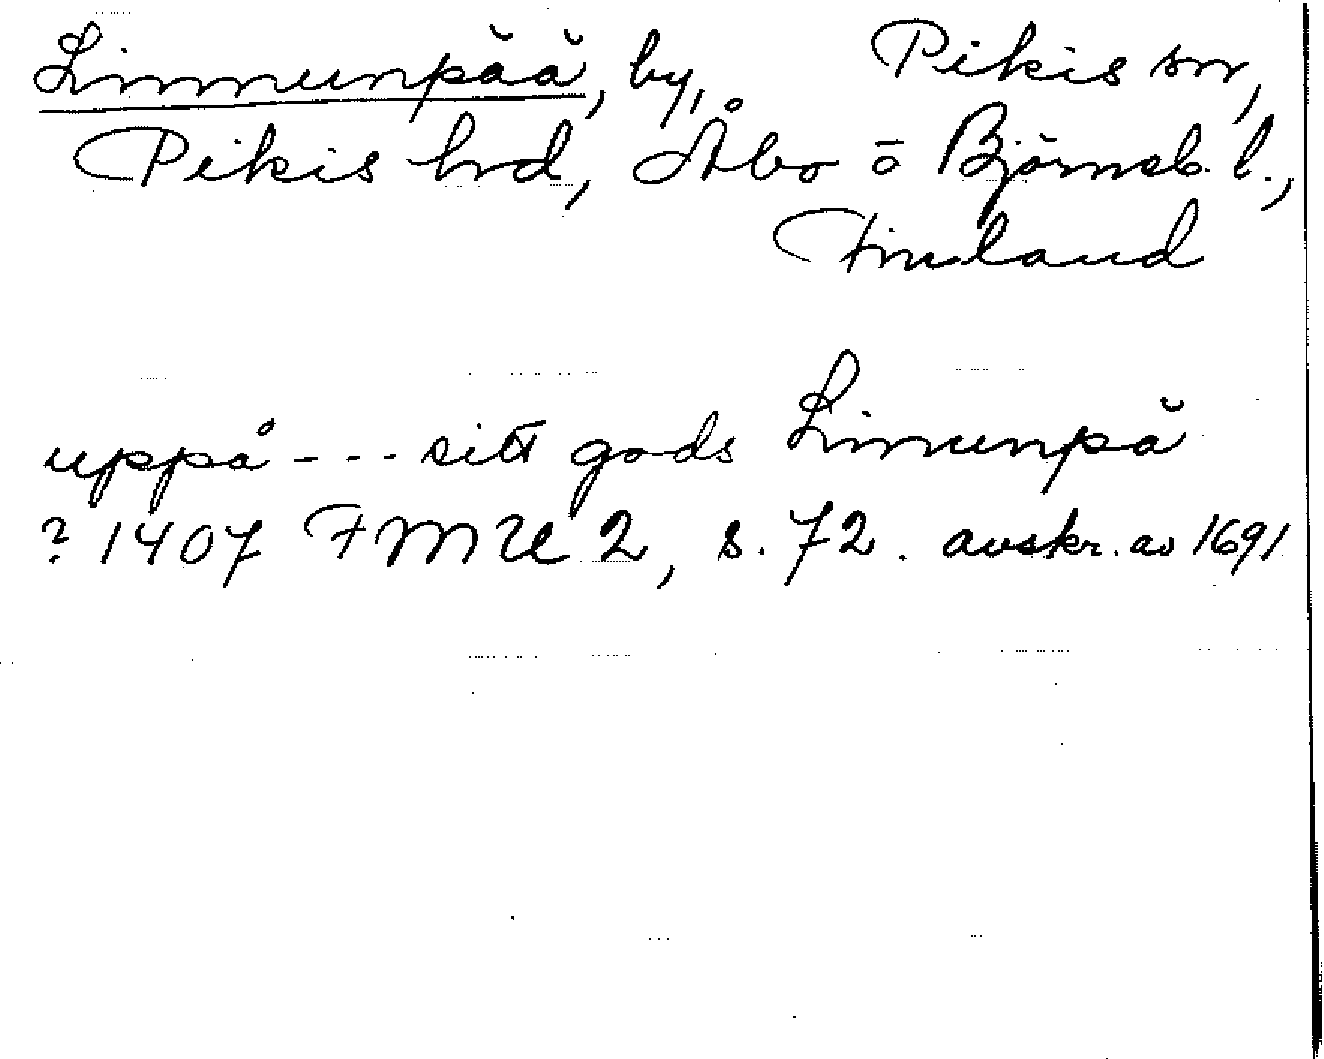 Limmunpää, by, Pikis sn,
Pikis hrd, Åbo o Björneb. l.,
Finland
uppå - - - sitt gods Limunpä
? 1407 FMU 2, s. 72. avskr. av 1691